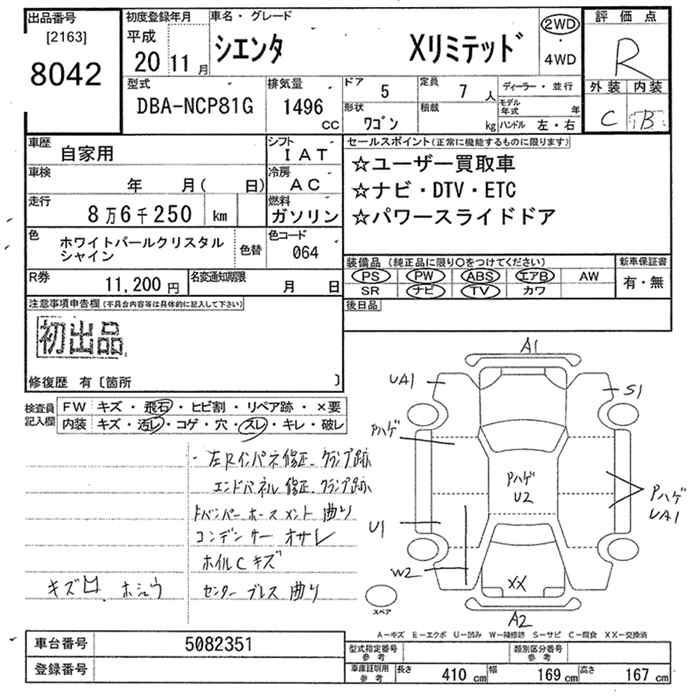 出品番号
[2163]
8042
初度登録年月
平成
20 11 月
車名・グレード
シエンタ Xリミテッド
2WD
4WD
評価点
R
外装 内装
C B
型式
DBA-NCP81G
排気量
1496
CC
ドア 5
定員 7 人
形状 ワゴン
積載 kg
ディーラー・並行
モデル年式 年
ハンドル 左・右
車歴
自家用
シフト
IAT
車検
年 月( 日)
冷房
AC
走行
8万6千250 km
燃料
ガソリン
色
ホワイトパールクリスタルシャイン
色替
色コード
064
R券
11,200 円
名変通知期限
月 日
セールスポイント(正常に機能するものに限ります)
☆ユーザー買取車
☆ナビ・DTV・ETC
☆パワースライドドア
装備品(純正品に限り○をつけてください)
PS PW ABS エアB AW
SR ナビ TV カワ
新車保証書
有・無
後日品
注意事項申告欄(不具合内容等は具体的に記入して下さい)
初出品
修復歴 有〔箇所 〕
検査員記入欄
FW キズ・飛石・ヒビ割・リペア跡・×要
内装 キズ・汚レ・コゲ・穴・スレ・キレ・破レ
・左Rインパネ修正、クランプ跡
エンドパネル修正、クランプ跡
Fバンパーホースメント曲り
コンデンサーオサレ
ホイルCキズ
センターブレス曲り
キズ凹 ホシュウ
A1
UA1
S1
Pハゲ
Pハゲ
U2
Pハゲ
UA1
U1
W2
XX
A2
スペア
A−キズ E−エクボ U−凹み W−補修跡 S−サビ C−腐食 XX−交換済
車台番号
5082351
登録番号
型式指定番号
参考
類別区分番号
参考
車庫証明用
参考
長さ 410 cm
幅 169 cm
高さ 167 cm